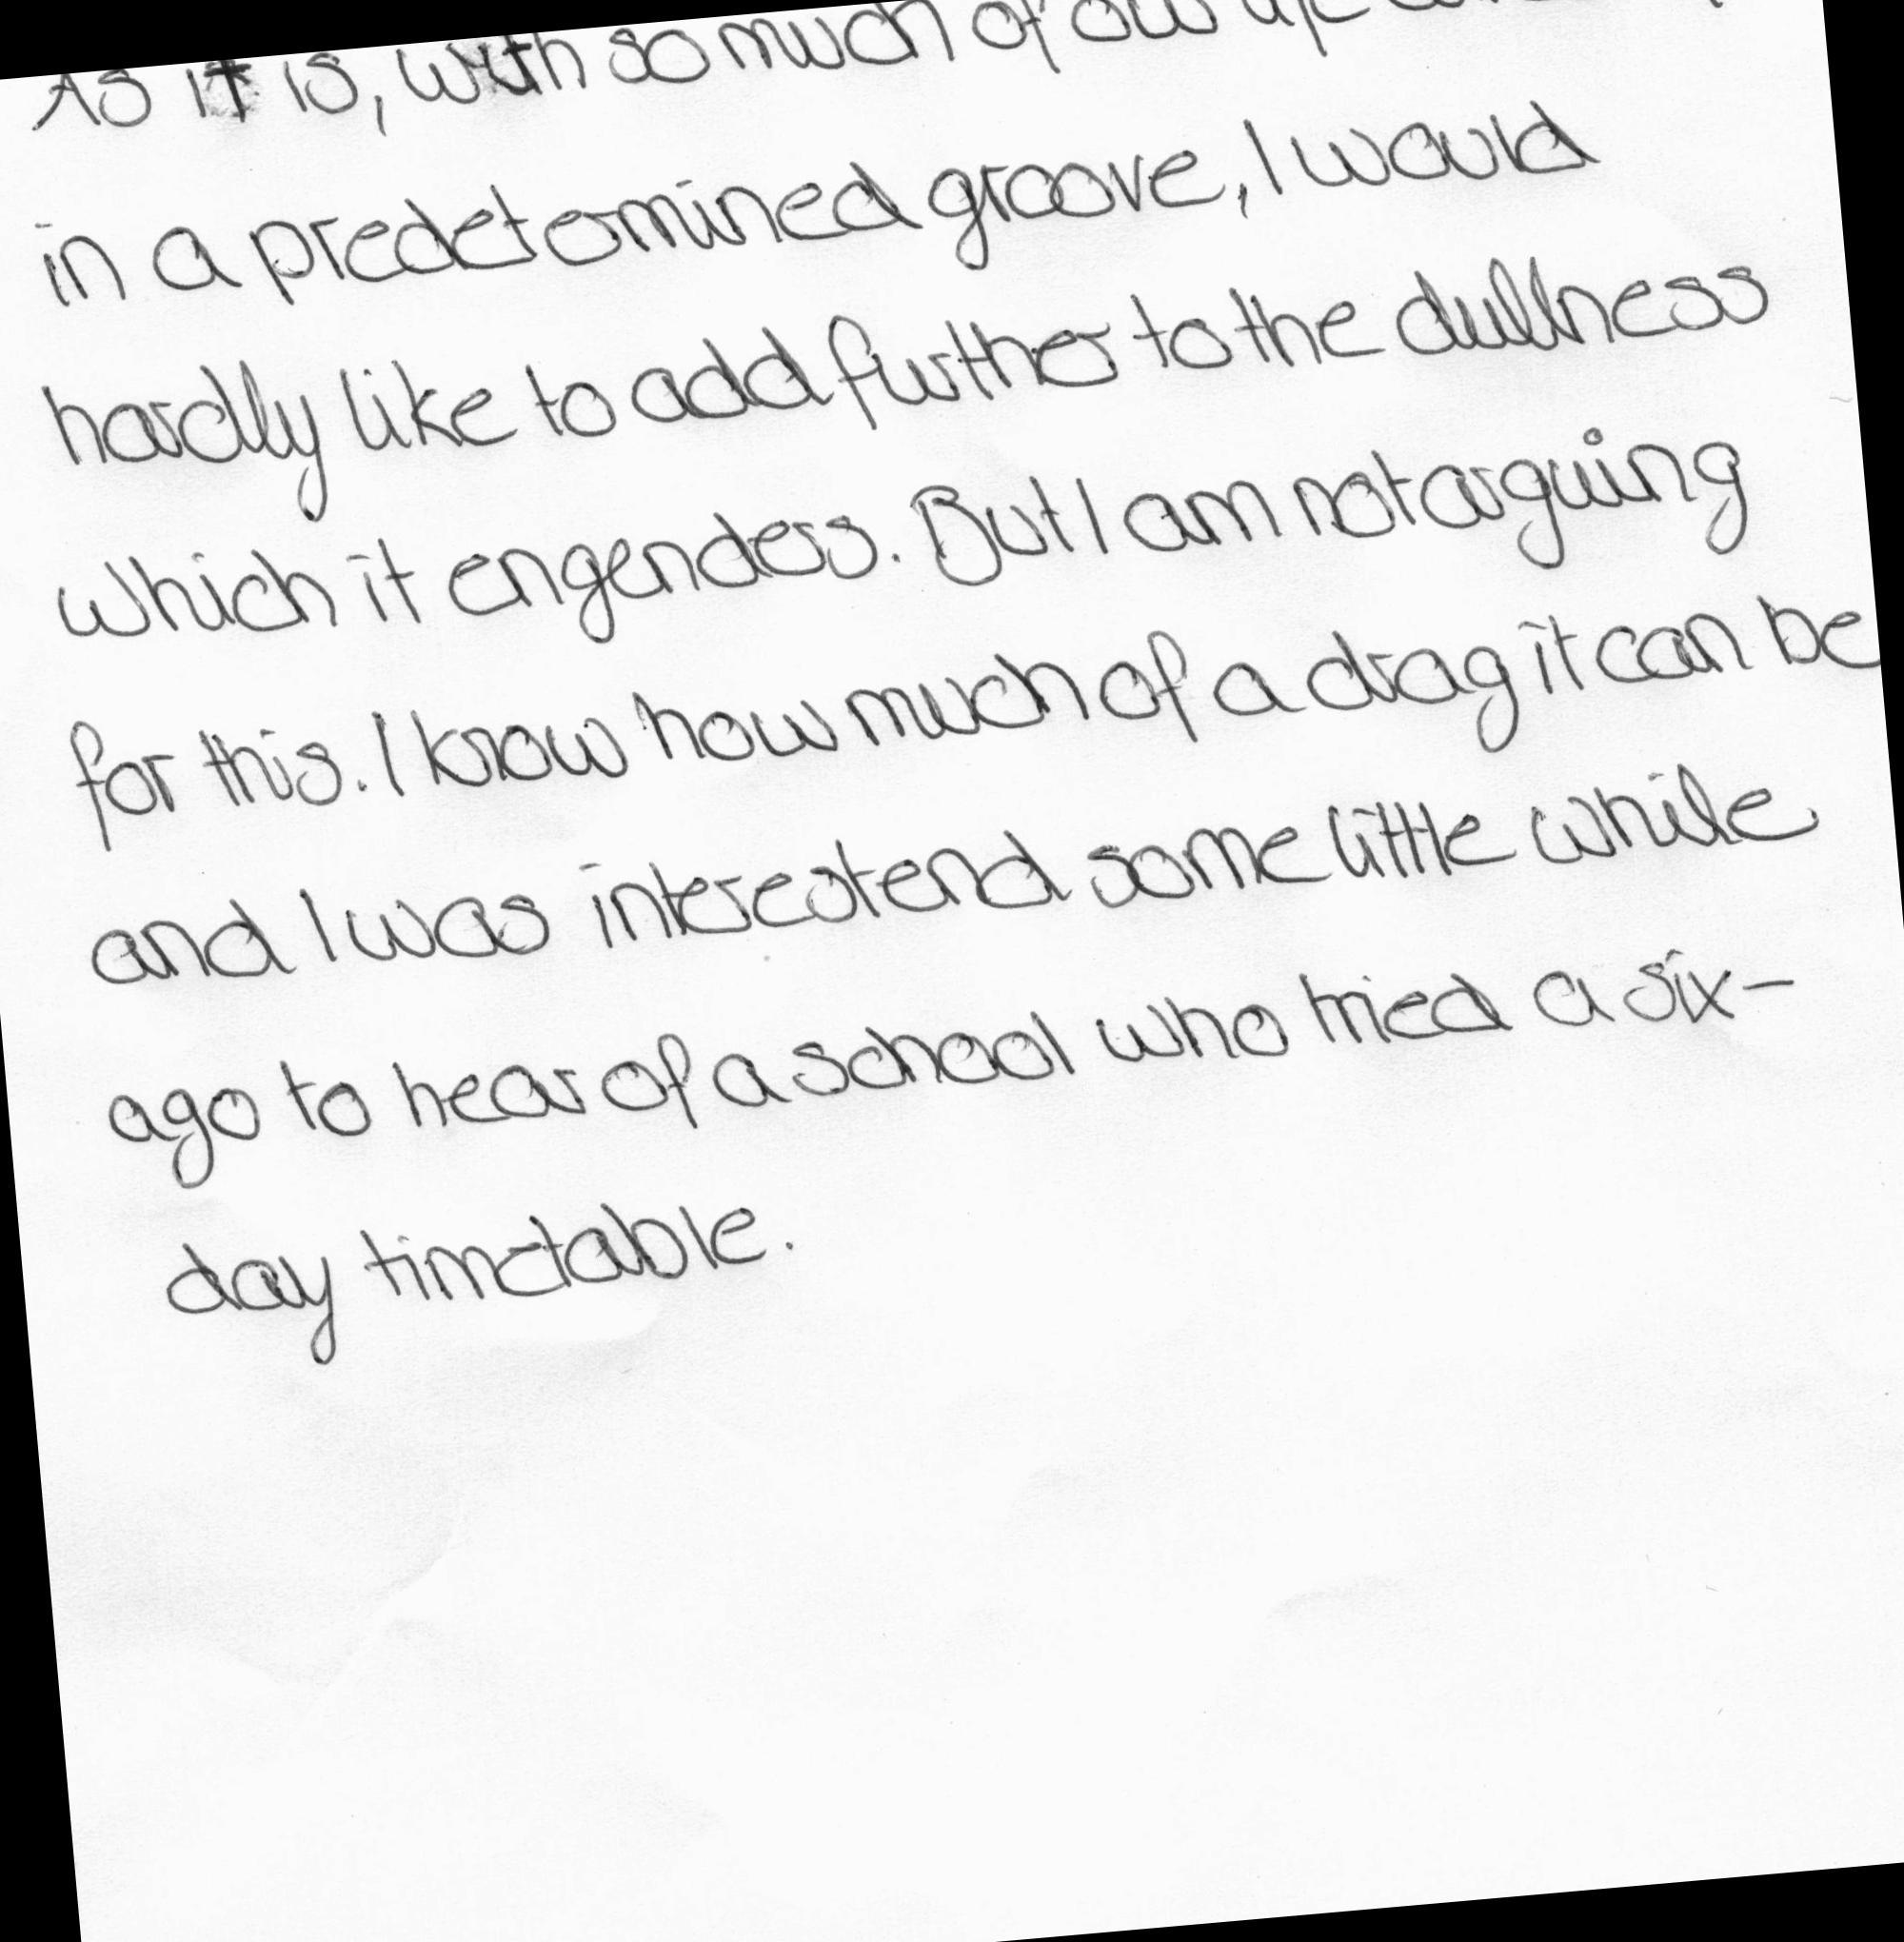 As it is, with so much of our life
in a predetermined groove, I would
hardly like to add further to the dullness
which it engenders. But I am not arguing
for this. I know how much of a drag it can be
and I was interestend some little while
ago to hear of a school who tried a six-
day timetable.